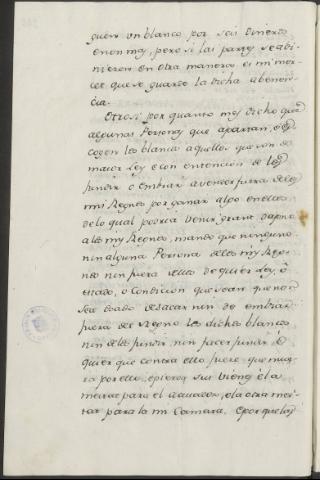 guen un blanco por seis dineros
e non mas, pero si las partes se abi
nieren en otra manera es mi mer
ced que se guarde la dicha abenen
cia.
Otrosi por quanto me es dicho que
algunas Personas que apartan, e es
cogen los blancos aquellos que son de
maior Ley e con entencion de los
fundir o embiar a vender fuera de los
mis Regnos por ganar algo en ellos
de lo qual podria venir grant dapno
a los mis Regnos, mando que ninguno
nin alguna Persona de los mis Reg
nos nin fuera dellos de quier Ley, o
estado, o Condicion que sean que no
sea osado de sacar nin de embiar
fuera del Regno los dichos blancos
nin de los fundir, nin facer fundir, e
quier que contra ello fuere, que mue
ra por ello, e pierda sus bienes la
meitat para el acusador, e la otra mei
tat para la mi Camara. E por que los